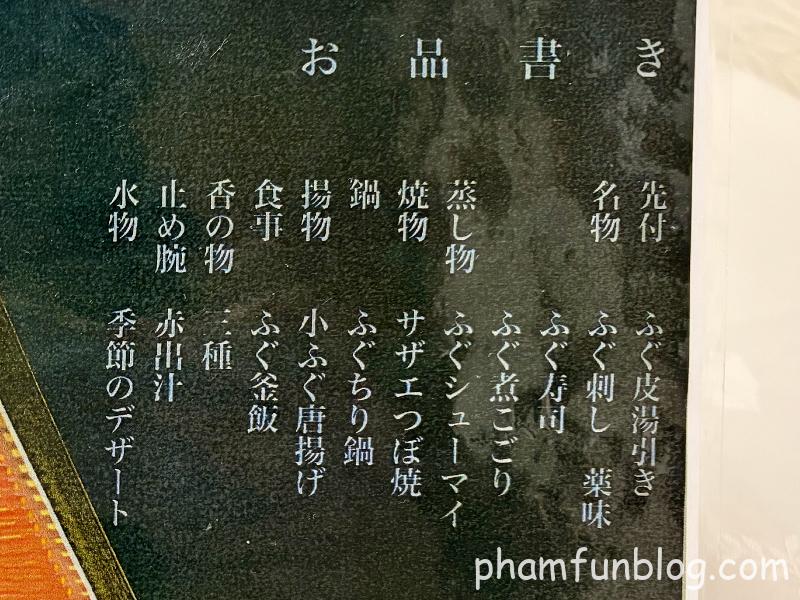 お品書き
先付 ふぐ皮湯引き
名物 ふぐ刺し 薬味
ふぐ寿司
ふぐ煮こごり
蒸し物 ふぐシューマイ
焼物 サザエつぼ焼
鍋 ふぐちり鍋
揚物 小ふぐ唐揚げ
食事 ふぐ釜飯
香の物 三種
止め腕 赤出汁
水物 季節のデザート
phamfunblog.com